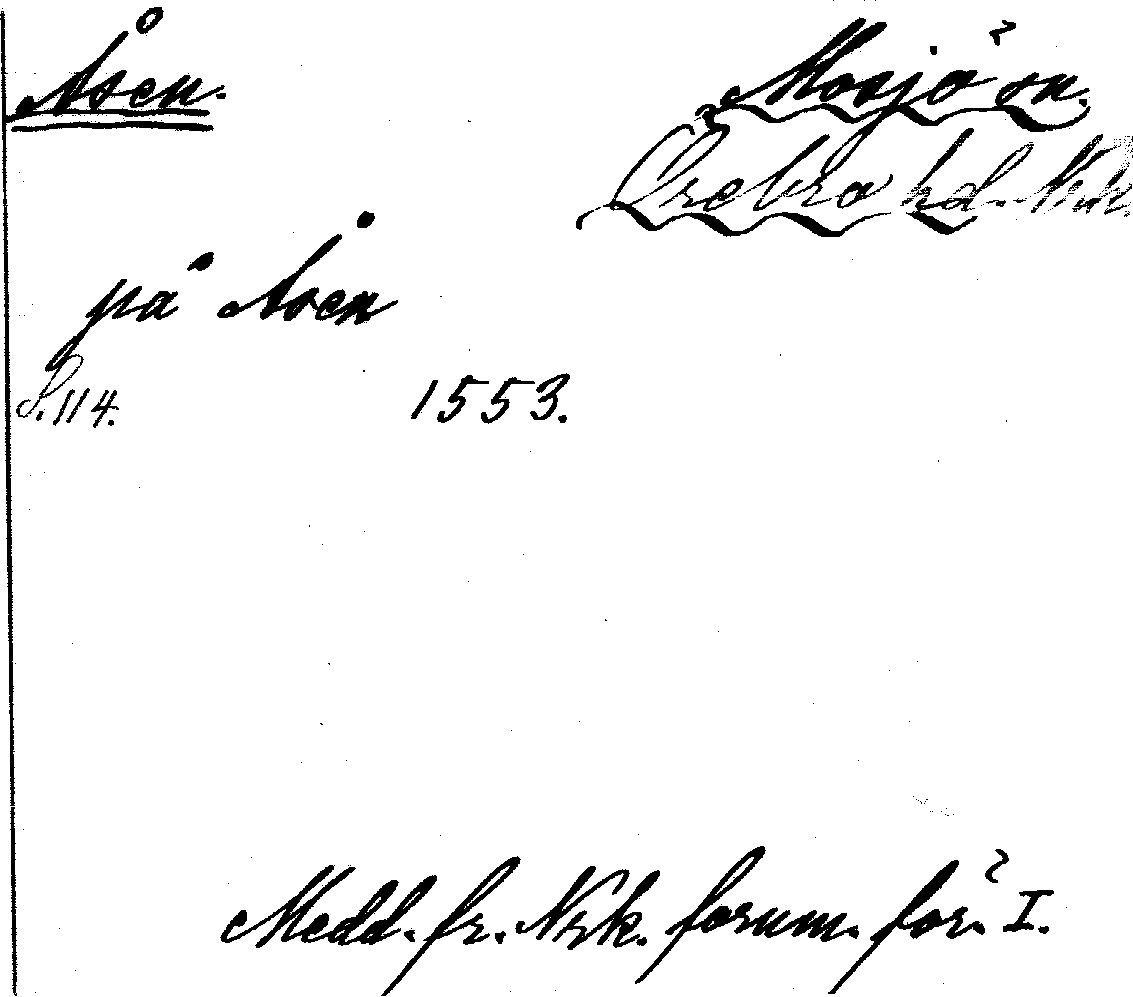 Åsen.
Mosjö sn.
Örebro hd. Nrk.
på Åsen
S. 114.
1553.
Medd. fr. Nrk. fornm. för. I.